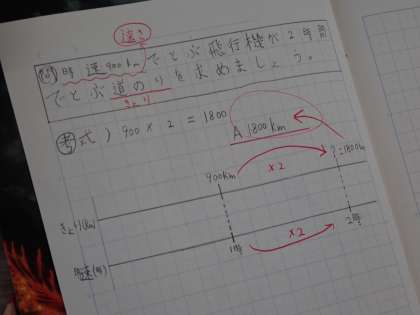 速さ
問 時速900kmでとぶ飛行機が2時間
でとぶ道のりを求めましょう。
きょり
考 式) 900×2=1800
A 1800km
900km
×2
?=1800km
きょり(km)
時速(時)
1時
×2
2時